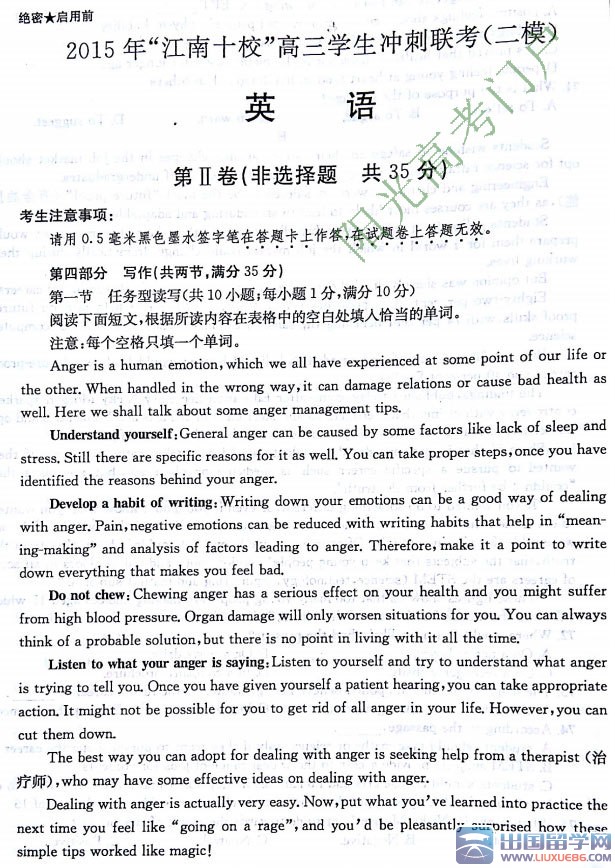 绝密★启用前
2015年“江南十校”高三学生冲刺联考(二模)
英 语
第Ⅱ卷(非选择题 共35分)
考生注意事项:
请用0.5毫米黑色墨水签字笔在答题卡上作答,在试题卷上答题无效。
第四部分 写作(共两节,满分35分)
第一节 任务型读写(共10小题;每小题1分,满分10分)
阅读下面短文,根据所读内容在表格中的空白处填入恰当的单词。
注意:每个空格只填一个单词。
Anger is a human emotion, which we all have experienced at some point of our life or
the other. When handled in the wrong way, it can damage relations or cause bad health as
well. Here we shall talk about some anger management tips.
Understand yourself: General anger can be caused by some factors like lack of sleep and
stress. Still there are specific reasons for it as well. You can take proper steps, once you have
identified the reasons behind your anger.
Develop a habit of writing: Writing down your emotions can be a good way of dealing
with anger. Pain, negative emotions can be reduced with writing habits that help in “mean-
ing-making” and analysis of factors leading to anger. Therefore, make it a point to write
down everything that makes you feel bad.
Do not chew: Chewing anger has a serious effect on your health and you might suffer
from high blood pressure. Organ damage will only worsen situations for you. You can always
think of a probable solution, but there is no point in living with it all the time.
Listen to what your anger is saying: Listen to yourself and try to understand what anger
is trying to tell you. Once you have given yourself a patient hearing, you can take appropriate
action. It might not be possible for you to get rid of all anger in your life. However, you can
cut them down.
The best way you can adopt for dealing with anger is seeking help from a therapist (治
疗师), who may have some effective ideas on dealing with anger.
Dealing with anger is actually very easy. Now, put what you've learned into practice the
next time you feel like “going on a rage”, and you'd be pleasantly surprised how these
simple tips worked like magic!
阳光高考门户
出国留学网
www.liuxue86.com